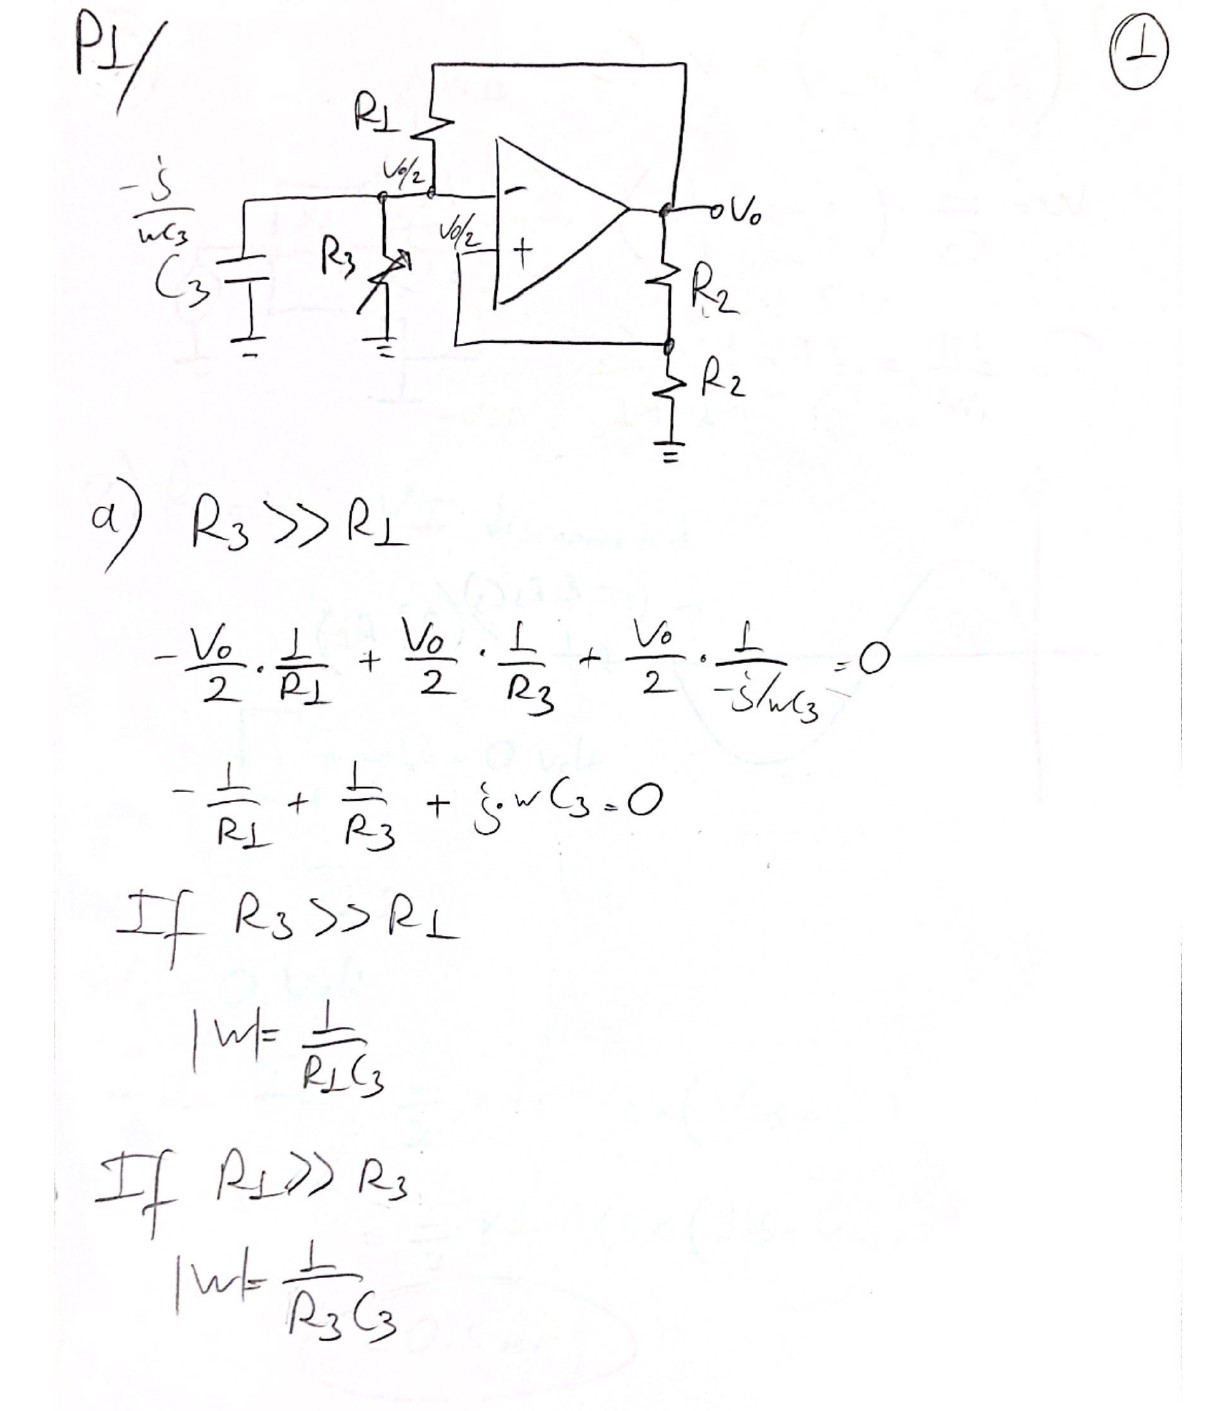 P1/
①
R1
-j/wC3
Vo/2
Vo/2
-
+
oVo
C3
R3
R2
R2
a) R3 >> R1
-Vo/2 · 1/R1 + Vo/2 · 1/R3 + Vo/2 · 1/(-j/wC3) = 0
-1/R1 + 1/R3 + j·wC3 = 0
If R3 >> R1
|w| = 1/R1C3
If R1 >> R3
|w| = 1/R3C3